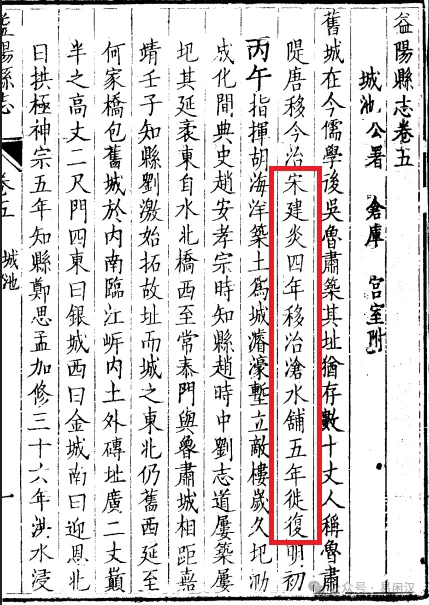 益陽縣志卷五
城池 公署 倉庫 宫室附
舊城在今儒學後吳魯肅築其址猶存數十丈人稱魯肅
隄唐移今治宋建炎四年移治滄水舖五年徙復明初
丙午指揮胡海洋築土爲城濬濠塹立敵樓歲久圮泐
成化間典史趙安孝宗時知縣趙時中劉志道屢築屢
圮其延袤東自水北橋西至常泰門與魯肅城相距嘉
靖壬子知縣劉激始拓故址而城之東北仍舊西延至
何家橋包舊城於内南臨江岍内土外磚址廣二丈巔
半之高丈二尺門四東曰銀城西曰金城南曰迎恩北
曰拱極神宗五年知縣鄭思孟加修三十六年洪水浸
益陽縣志
卷五
城池
一
公众号·星闲汉